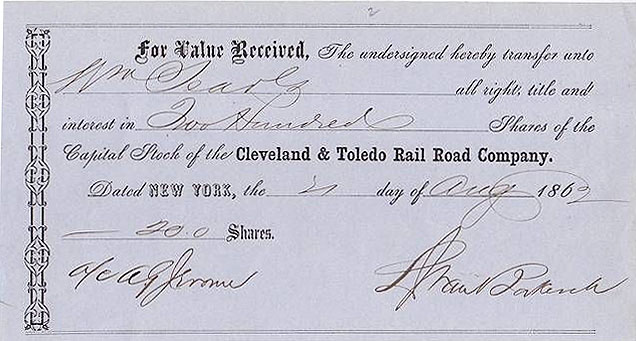 For Value Received, The undersigned hereby transfer unto
Wm all right, title and
interest in Two Hundred Shares of the
Capital Stock of the Cleveland & Toledo Rail Road Company.
Dated NEW YORK, the 21 day of Aug 186
200 Shares.
A G Jerome